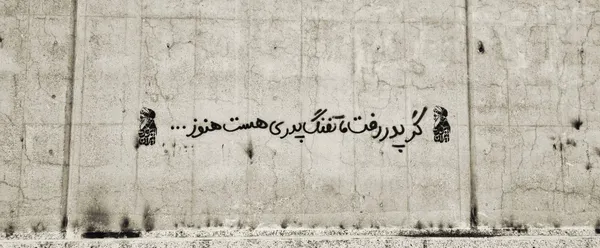 گر پدر رفت ما تفنگ پدری هست هنوز ...